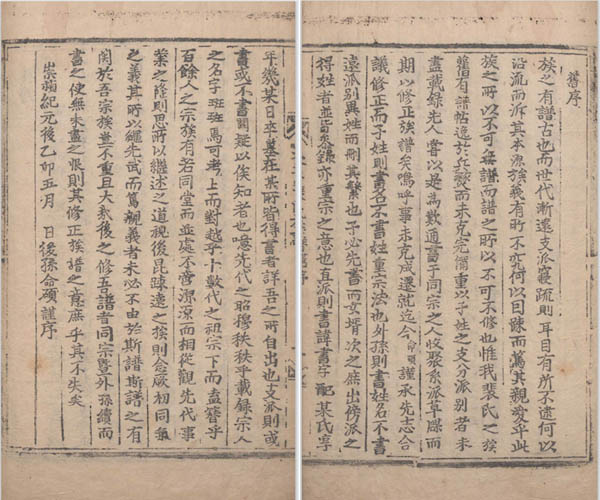 舊序
族之有譜古也而世代漸遠支派寢疏則耳目有所不逮何以
沿流而泝其本源族義有所不究何以由踈而篤其親愛乎此
族之所以不可無譜而譜之所以不可不修也惟我裴氏之族
舊有譜帖逸於兵燹而未克完備重以子姓之支分派別者未
盡載錄先人嘗以是為歎通書于同宗之人收聚系派草牒而
期以修正族譜矣嗚呼事未克成遷就迄今命碩謹承先志合
議修正而子姓則書名不書姓重宗法也外孫則書姓名不書
遠派別異姓而刪其繁也子必先書而女壻次之庶出傍派之
得姓者並皆參錄亦重宗之意也直派則書諱書字配某氏享
年幾某日卒墓在某所皆得書者詳吾之所自出也支派則或
書或不書闕疑以俟知者也噫先代之昭穆秩秩乎載錄宗人
之名字班班焉可考上而對越乎十數代之祖宗下而盍簪乎
百餘人之宗族有若同堂而並處不啻潔潔而相從觀先代事
業之隆則思所以繼述之道視後昆踈遠之族則念厥初同氣
之義其所以繼先武而篤親義者未必不由於斯譜斯譜之有
關於吾宗族豈不重且大歟後之修吾譜者同宗曁外孫續而
書之使無未盡之恨則其修正族譜之意庶乎其不失矣
崇禎紀元後乙卯五月 日後孫命碩謹序